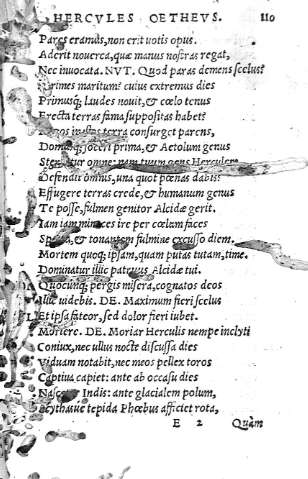 HERCVLES OETHEVS. 110
Pares eramus, non erit uotis opus.
Aderit nouerca, quæ manus nostras regat,
Nec inuocata. NVT. Quod paras demens scelus?
Perimes maritum? cuius extremus dies
Primusq; laudes nouit, & cœlo tenus
Erecta terras fama suppositas habet?
terra consurget parens,
Domusq; soceri prima, & Aetolum genus
Sternetur omne: nam tuum gens Herculem
Defendit omnis, una quot pœnas dabis?
Effugere terras crede, & humanum genus
Te posse, fulmen genitor Alcidæ gerit.
Iam iam minaces ire per cœlum faces
Specta, & tonantem fulmine excusso diem.
Mortem quoq; ipsam, quam putas tutam, time.
Dominatur illic patruus Alcidæ tui.
Quocunq; pergis misera, cognatos deos
Illic uidebis. DE. Maximum fieri scelus
Et ipsa fateor, sed dolor fieri iubet.
Moriere. DE. Moriar Herculis nempe inclyti
Coniux, nec ullus nocte discussa dies
Viduam notabit, nec meos pellex toros
Captiua capiet: ante ab occasu dies
Nascetur Indis: ante glacialem polum,
Scythasue tepida Phœbus afficiet rota,
E 2 Quàm